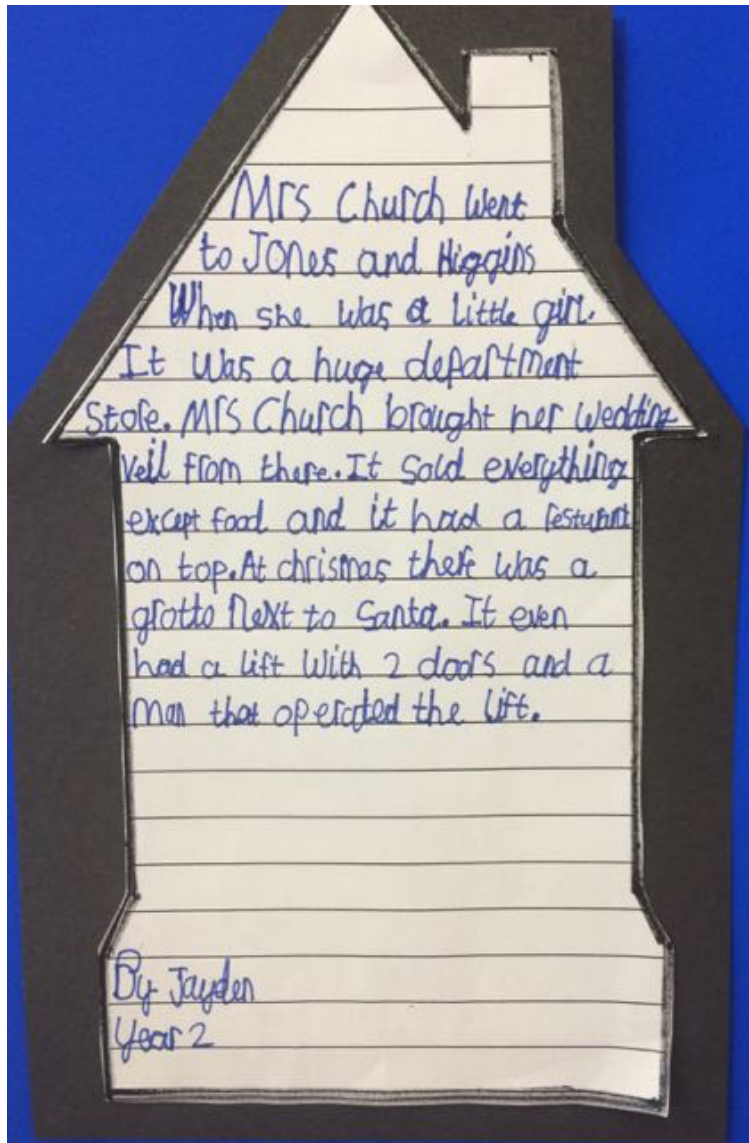 Mrs Church Went
to Jones and Higgins
When she was a little girl.
It was a huge department
store. Mrs Church brought her wedding
veil from there. It sold everything
except food and it had a resturant
on top. At chrismas there was a
grotto next to Santa. It even
had a lift with 2 doors and a
man that operated the lift.
By Jayden
Year 2